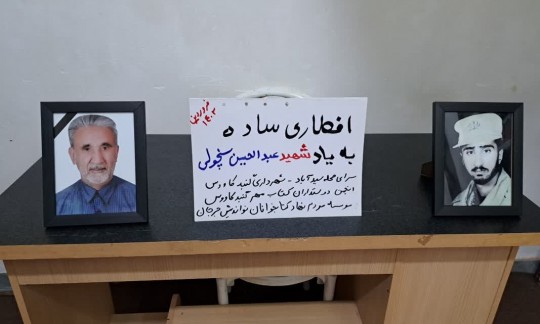 فروردین
۱۴۰۲
افطاری ساده
به یاد شهید عبدالحسین سنچولی
سرای محله سیدآباد - شهرداری گنبد کاووس
انجمن دوستداران کتاب شهر گنبد کاووس
موسسه مردم نهاد کتابخوانان نواندیش جرجان